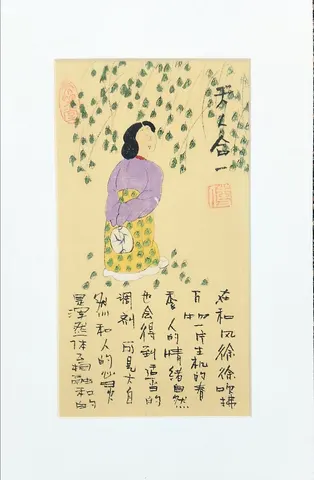 天人合一
在和风徐徐吹拂
一片生机的春
季人的情绪自然
也会得到适当的
调剂 可见大自
然和人的心灵
是浑然一体互相融和的